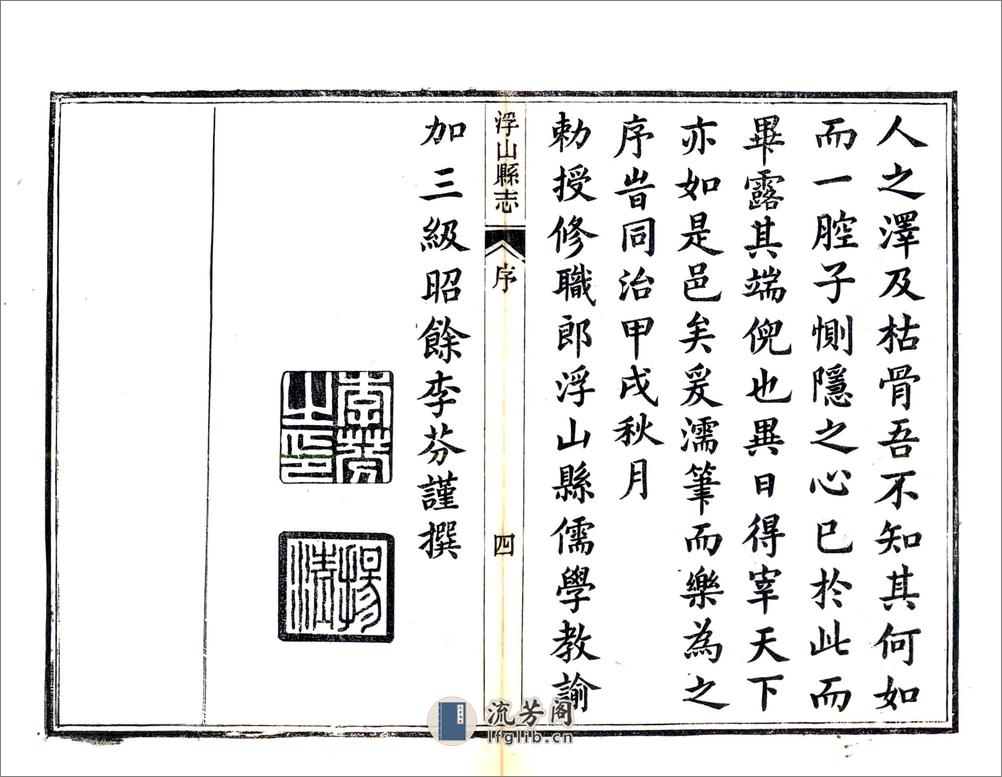 人之澤及枯骨吾不知其何如
而一腔子惻隱之心已於此而
畢露其端倪也異日得宰天下
亦如是邑矣爰濡筆而樂為之
序旹同治甲戌秋月
勅授修職郎浮山縣儒學教諭
浮山縣志
序
四
加三級昭餘李芬謹撰
李芬之印
流芳阁
lfglib.cn